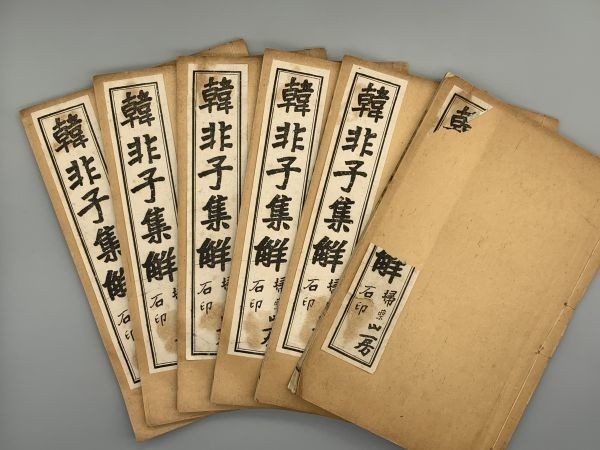 韓非子集觧
石印
韓非子集觧
石印
韓非子集觧
掃
石印
韓非子集觧
掃
石印
韓非子集觧
掃
石印
觧
掃葉山房
石印